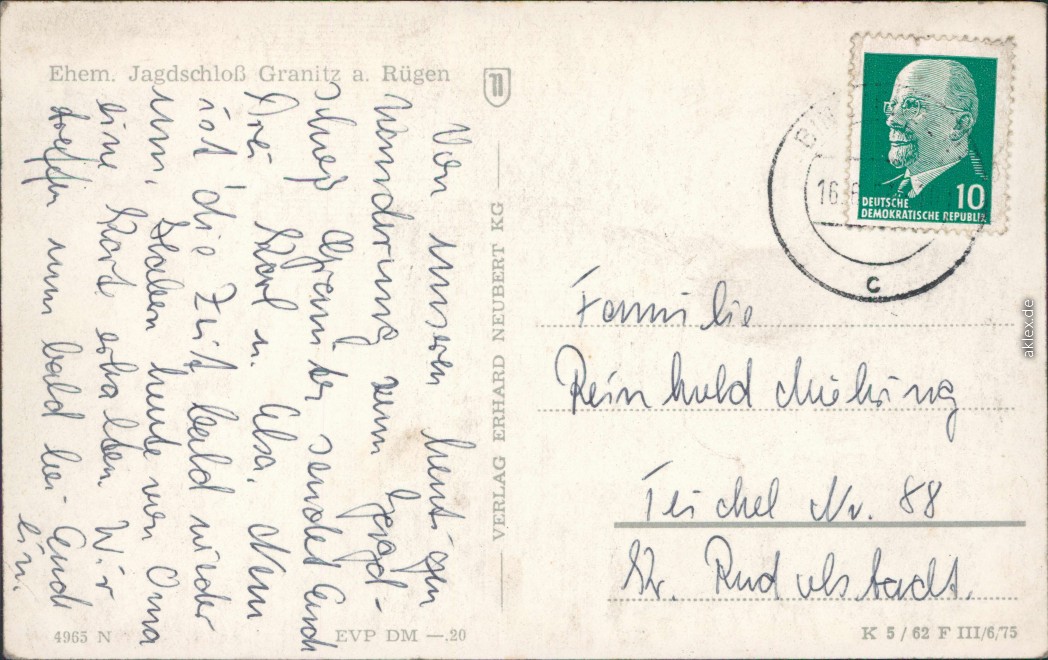 Ehem. Jagdschloß Granitz a. Rügen
Von unserer heutigen
Wanderung zum Jagd-
schloß Granitz sendet Euch
Drei Karl u. Elsa. Nun
ist die Zeit bald wieder
um. Haben heute von Oma
eine Karte erhalten. Wir
treffen nun bald bei Euch
ein.
VERLAG ERHARD NEUBERT KG
BIN
16.6.
c
DEUTSCHE
DEMOKRATISCHE REPUBLIK
10
Familie
Reinhold Möhring
Teichel Nr. 88
Kr. Rudolstadt.
4965 N
EVP DM —.20
K 5/62 F III/6/75
aklex.de